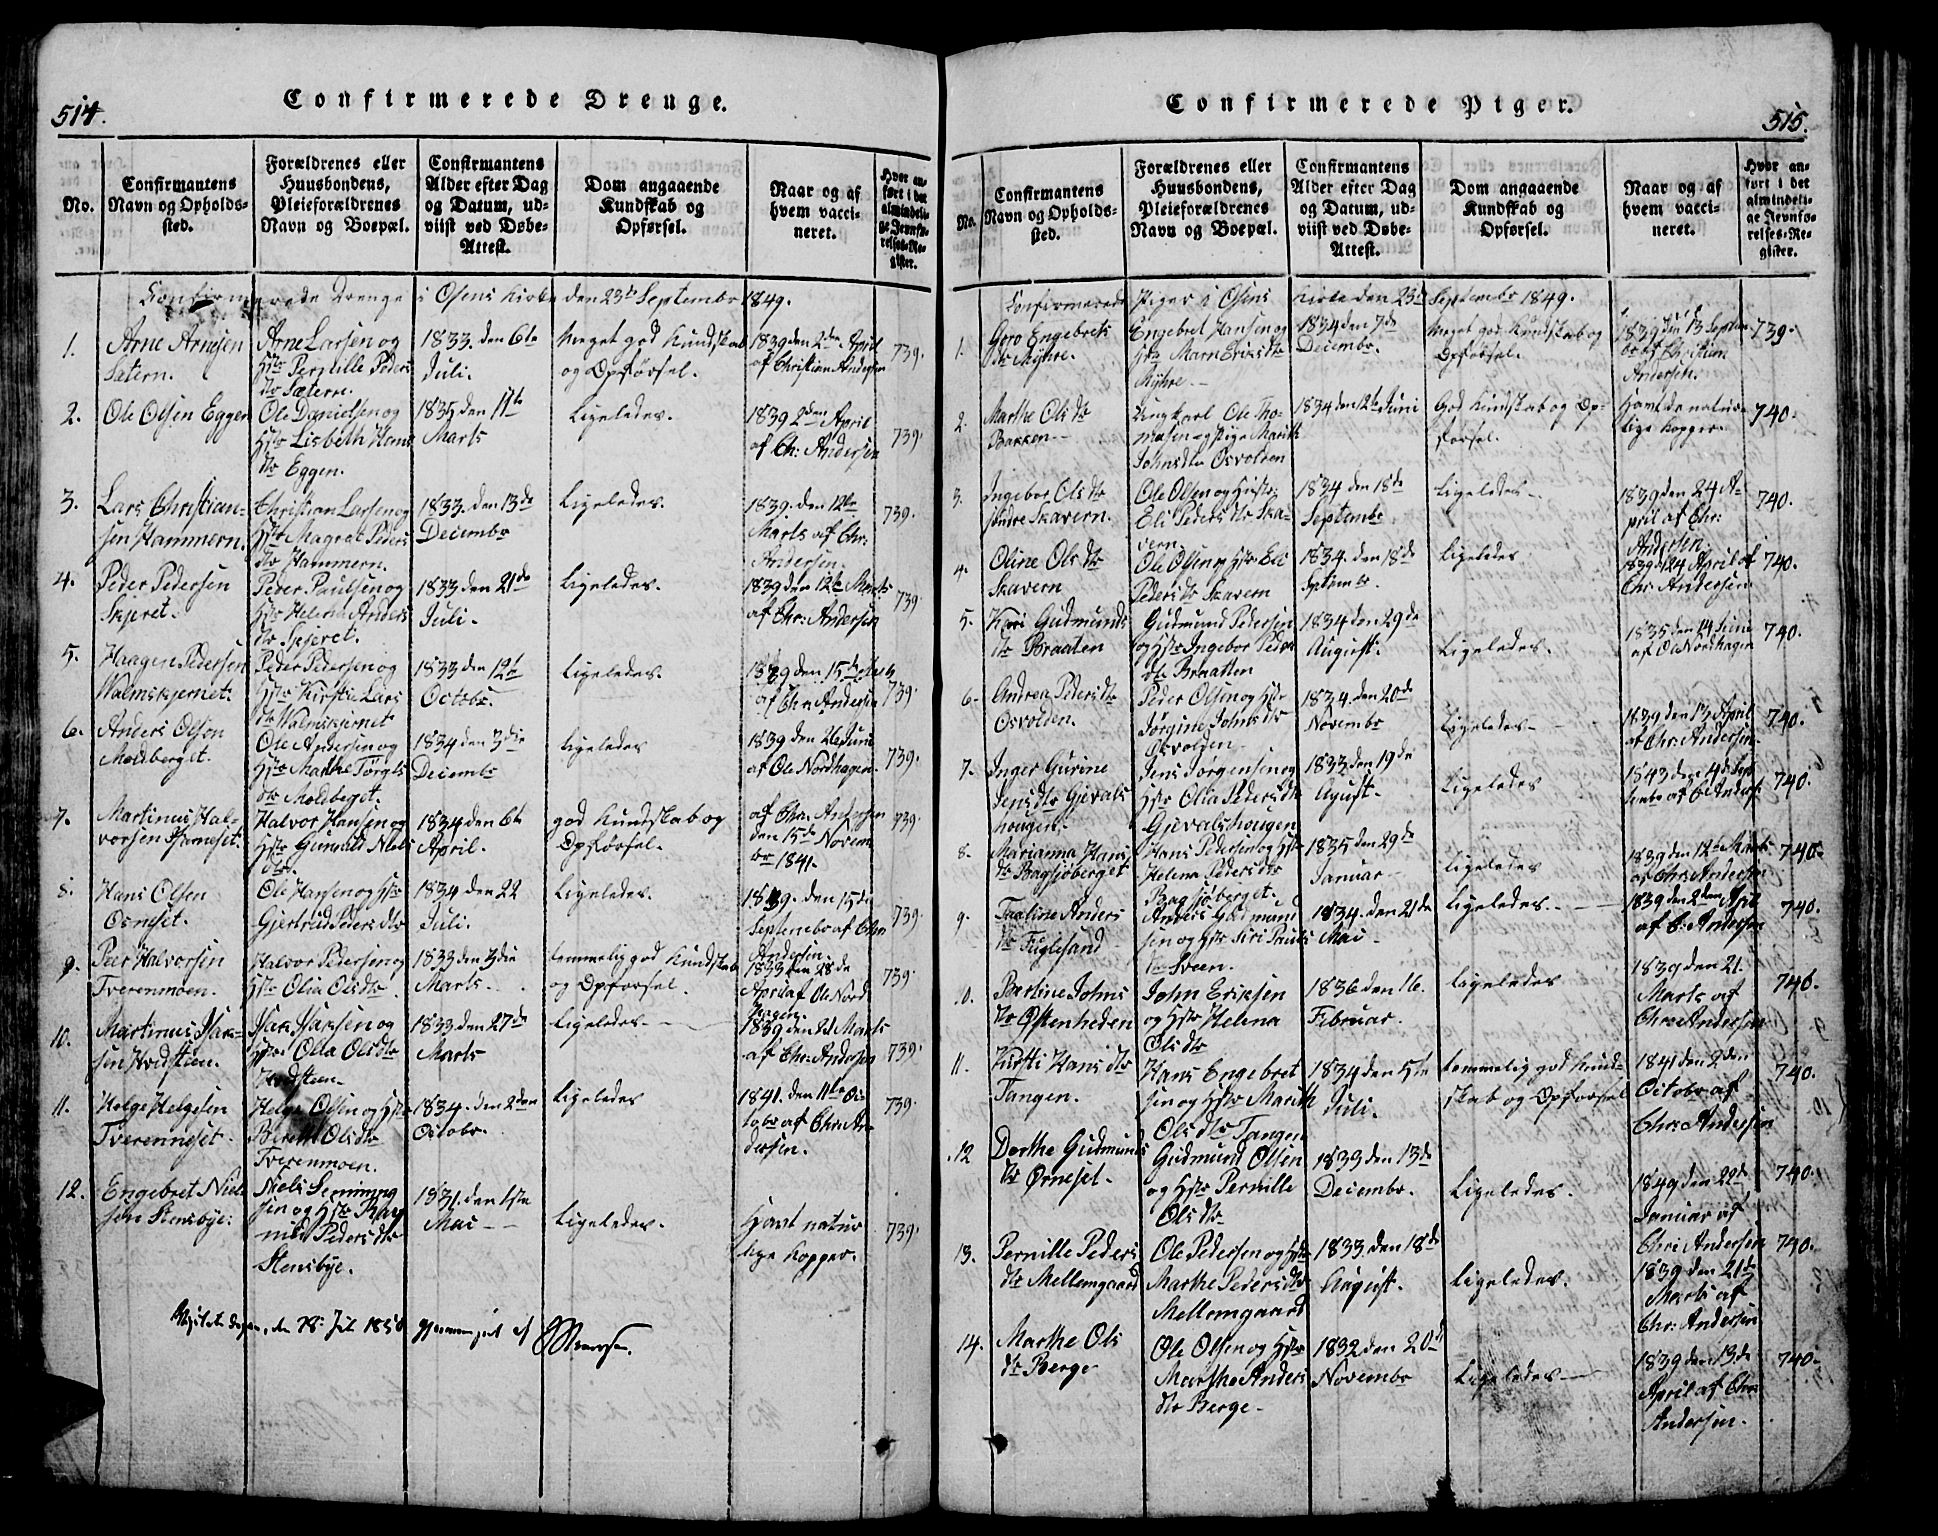 514.
Confirmerede Drenge.
No.
Confirmantens
Navn og Opholds-
sted.
Forældrenes eller
Huusbondens,
Pleieforældrenes
Navn og Boepæl.
Confirmantens
Alder efter Dag
og Datum, ud-
viist ved Døbe-
Attest.
Dom angaaende
Kundskab og
Opførsel.
Naar og af
hvem vacci-
neret.
Hvor an-
ført i det
almindeli-
ge Jevnfø-
relses-Re-
gister.
Confirmerede Drenge i Osens Kirke den 23de Septembr 1849.
1.
Arne Arnesen
Sætern.
Arne Larsen og
Hstr Pernille Peders
dtr Sætern.
1833. den 6te
Juli.
Meget god Kundskab
og Opførsel.
1839 den 2den April
af Christian Andersen
739.
2.
Ole Olsen Eggen
Ole Danielsen og
Hstr Lisbeth Hans
dtr Eggen.
1835 den 11te
Marts
Ligeledes.
1839 2den April
af Chr: Andersen
739.
3.
Lars Christian-
sen Hammern.
Christian Larsen og
Hstr Magret Peders
dtr Hammern.
1833. den 13de
Decembr
Ligeledes.
1839. den 12te
Marts af Chr:
Andersen.
739.
4.
Peder Pedersen
Skjeret.
Peder Paulsen og
Hstr Helene Anders
dtr Skjeret.
1833 den 21de
Juli.
Ligeledes.
1839 den 12te Marts
af Chr: Andersen
739.
5.
Haagen Pedersen
Valmskjernet.
Peder Pedersen og
Hstr Kirstie Lars
dtr Valmskjernet
1833 den 12t
Octobr.
Ligeledes.
1839 den 15de
af Chr Andersen
739.
6.
Anders Olson
Moldberget.
Ole Andersen og
Hstr Marthe Törgls
dtr Moldberget.
1834 den 3die
Decembr
Ligeledes
1839 den 26 Juni
af Ole Nordhagen.
739.
7.
Martinus Hal-
vorsen
Halvor Hansen og
Hstr Gunild Niels
dtr.
1834 den 6te
April.
god Kundskab og
Opførsel.
af Chr. Andersen
den 15de Novem
br 1841.
739.
8.
Hans Olsen
Osneset.
Ole Hansen og Hstr
Gjertrud Peders dtr
1834 den 22
Juli.
Ligeledes.
1839. den 15de
Septembr af Chr
Andersen.
739.
9.
Peer Halvorsen
Tverenmoen.
Halvor Pedersen og
Hstr Olia Olsdtr.
1833 den 3die
Marts.
temmelig god Kundskab
og Opførsel.
1833 den 28de
April af Ole Nord
hagen.
739
10.
Martinus Isak-
sen Hvidsteen.
Isak Isaksen og
Hstr Olia Olsdtr
Hvidsteen.
1833 den 27de
Marts
Ligeledes.
1839 den 21 Marts
af Chr: Andersen
739.
11.
Helge Helgesen
Tverenneset.
Helge Olsen og Hstr
Bereth Olsdtr
Tverenmoen.
1834. den 2den
Octobr.
Ligeledes
1841. den 11te Oc
tobr af Chr: An
dersen.
739.
12.
Engebret Niel
sen Stensbye.
Niels Semming
sen og Hstr Rag
nild Peders dtr
Stensbye.
1831. den 1ste
Mai
Ligeledes.
Havt natur
lige Kopper.
739.
515.
Confirmerede Piger.
No.
Confirmantens
Navn og Opholds-
sted.
Forældrenes eller
Huusbondens,
Pleieforældrenes
Navn og Boepæl.
Confirmantens
Alder efter Dag
og Datum, ud-
viist ved Døbe-
Attest.
Dom angaaende
Kundskab og
Opførsel.
Naar og af
hvem vacci-
neret.
Hvor an-
ført i det
almindeli-
ge Jevnfø-
relses-Re-
gister.
Confirmerede Piger i Osens Kirke den 23de Septembr 1849.
1.
Goro Engebrets
dtr Myhre.
Engebret Hansen og
Hstr Marn Eriksdtr
Myhre.
1834 den 7de
Decembr.
Meget god Kundskab og
Opførsel.
1839 den 13 Septem
br af Christian
Andersen.
739.
2.
Marthe Olsdtr
Bakken
Ungkarl Ole Tho-
masen og Pige Marith
Johnsdtr Osvolden
1834 den 12te Juni
God Kundskab og Op-
førsel.
Havt de natur-
lige Kopper.
740.
3.
Ingebor Olsdtr
søndre Skavern.
Ole Olsen og Hustr:
Eli Peders dtr Ska-
vern.
1834 den 18de
Septembr
Ligeledes
1839 den 24 A-
pril af Chr:
Andersen.
740.
4.
Oline Olsdtr
Skavern
Ole Olsen og Hstr Eli
Pedersdtr Skavern
1834. den 18de
Septembr.
Ligeledes
1839 d 24 April af
Chr. Andersen
740.
5.
Kari Gudmunds
dtr Braaten
Gudmund Pedersen
og Hstr Ingebor Peder
dtr Braatten
1834 den 29de
August.
Ligeledes.
1835 den 14 Juni
af Ole Nordhagen
740.
6.
Andrea Pedersdtr
Osvolden.
Peder Olsen og Hstr
Jørgine Johnsdtr
Osvolden
1834. den 20de
Novembr
Ligeledes
1839 den 13 April
af Chr: Andersen.
740.
7.
Inger Gurine
Jensdtr Gjevals
hougen.
Jens Jørgensen og
Hstr Olia Pedersdtr
Gjevalshougen
1833 den 19de
August.
Ligeledes
1843 den 4de Sep
tembr af C: Anders:
740.
8.
Marianna Hans
dtr Bagsjöberget
Hans Pedersen og Hstr
Helena Pedersdtr
Bagsjöberget.
1835 den 29de
Januar
Ligeledes
1839 den 12te Marts
af Chr: Andersen
740.
9.
Anders
dtr Fuglesand
Anders Gudmund
sen og Hstr Siri Pauls
dtr Sveen.
1834. den 21de
Mai
Ligeledes.
1839 den 2den April
af C: Andersen
740.
10.
Bertine Johns
dtr Østenheden
John Eriksen
og Hstr Helena
Olsdtr
1836 den 16.
Februar.
Ligeledes
1839 den 21.
Marts af
Chr: Andersen
740.
11.
Kirsti Hansdtr
Tangen.
Hans Engebret
sen og Hstr Marith
Olsdtr Tangen
1834 den 5te
Juli.
temmelig god Kund-
skab og Opførsel
1841 den 2den
Octobr af
Chr: Andersen
740.
12
Dorthe Gudmunds
dtr Ørneset.
Gudmund Olsen
og Hstr Pernille
Olsdtr
1833 den 13de
Decembr.
Ligeledes.
1849 den 22de
Januar af
Chr: Andersen
740.
13.
Pernille Peders
dtr Mellemgaard
Ole Pedersen og Hstr
Marthe Pedersdtr
Mellemgaard
1833. den 18de
August.
Ligeledes.
1839 den 21de
Marts af
Chr: Andersen
740.
14.
Marthe Ols
dtr Berge
Ole Olsen og Hstr
Marthe Anders
dtr Berge
1832 den 20de
Novembr
Ligeledes
1839 den 13de
April af Chr:
Andersen.
740.